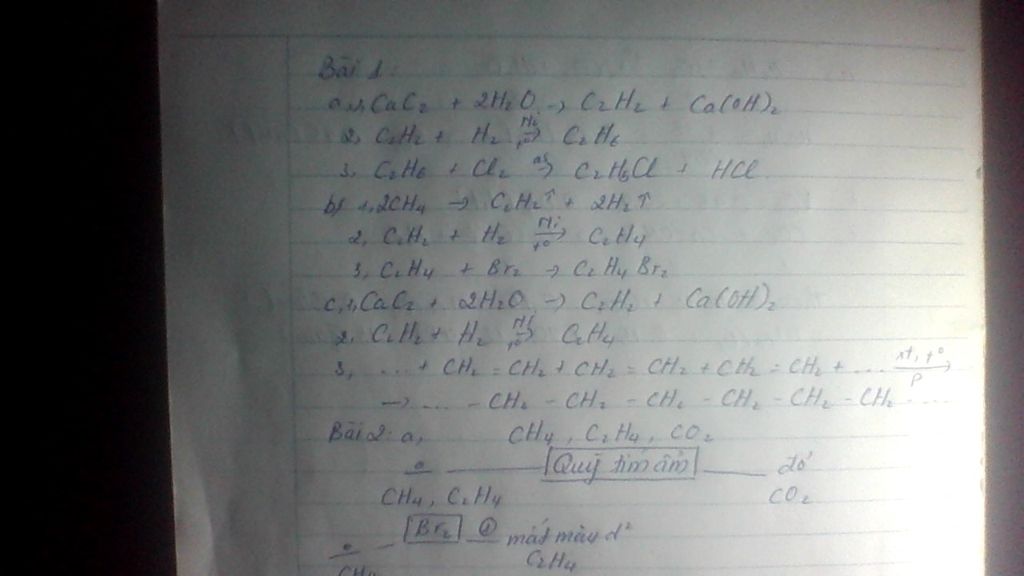 Bài 1:
a, 1, CaC₂ + 2H₂O → C₂H₂ + Ca(OH)₂
2, C₂H₂ + H₂ Ni t⁰ → C₂H₆
3, C₂H₆ + Cl₂ as → C₂H₅Cl + HCl
b, 1, 2CH₄ → C₂H₂↑ + 2H₂↑
2, C₂H₂ + H₂ Ni t⁰ → C₂H₄
3, C₂H₄ + Br₂ → C₂H₄Br₂
c, 1, CaC₂ + 2H₂O → C₂H₂ + Ca(OH)₂
2, C₂H₂ + H₂ Ni t⁰ → C₂H₄
3, ... + CH₂ = CH₂ + CH₂ = CH₂ + CH₂ = CH₂ + ... xt, t⁰ p →
→ ... - CH₂ - CH₂ - CH₂ - CH₂ - CH₂ - CH₂ ...
Bài 2: a, CH₄, C₂H₄, CO₂
0 Quỳ tím ẩm đỏ
CH₄, C₂H₄ CO₂
0 Br₂ mất màu d²
CH₄ C₂H₄